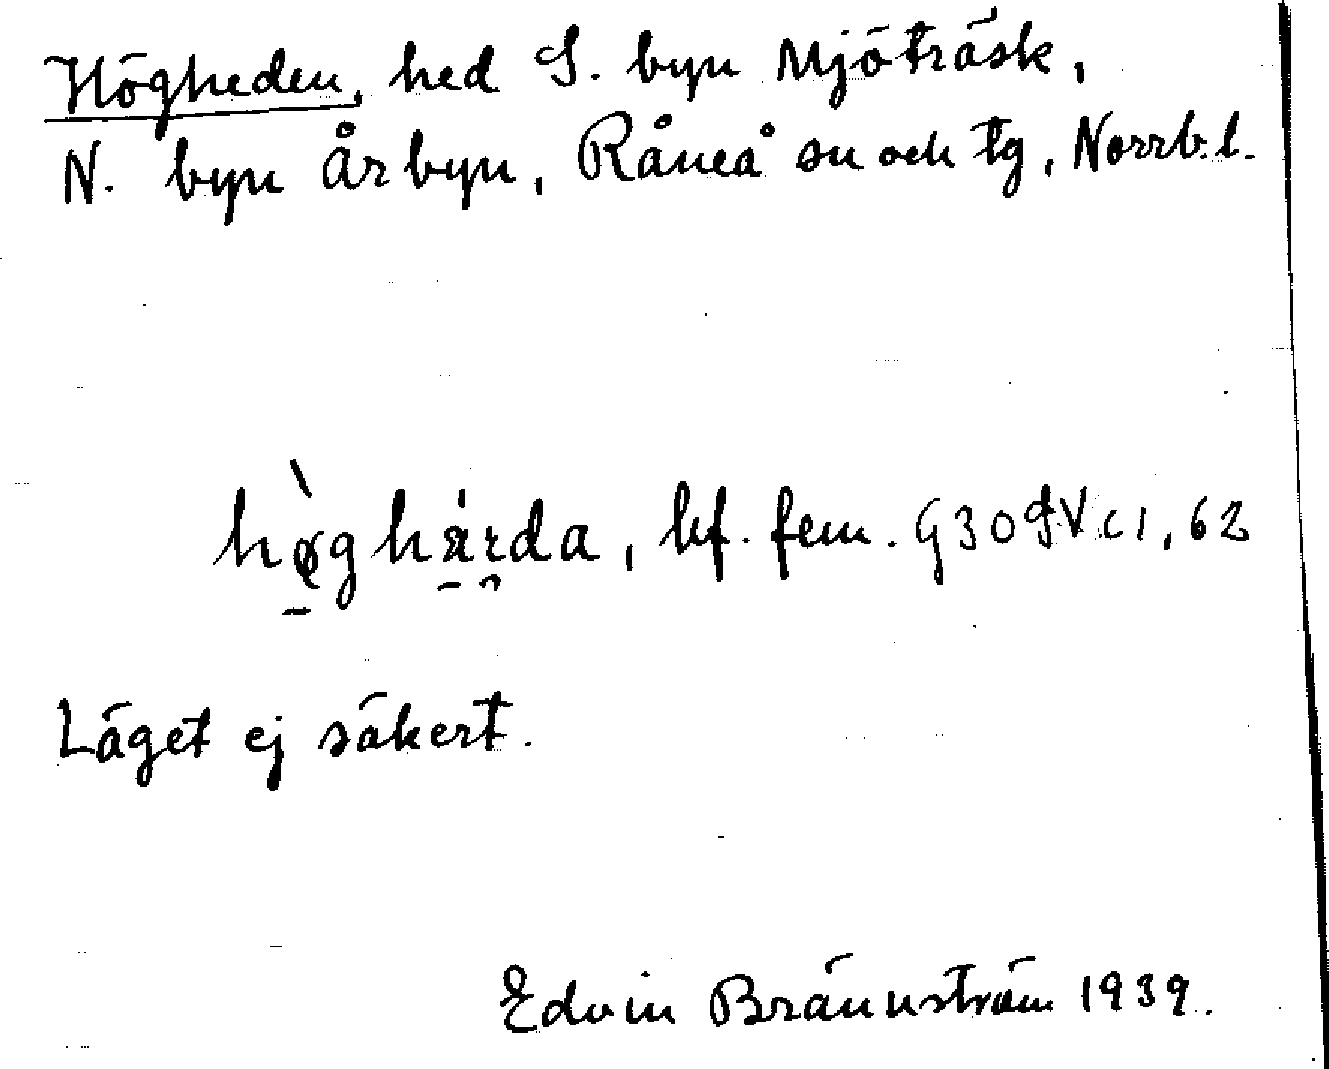 Högheden, hed S. byn Mjöträsk,
N. byn Årbyn, Råneå sn och tg, Norrb. l.
hø̀ghärda, bf. fem. G30SV c1, 62
Läget ej säkert.
Edvin Brännström 1939.